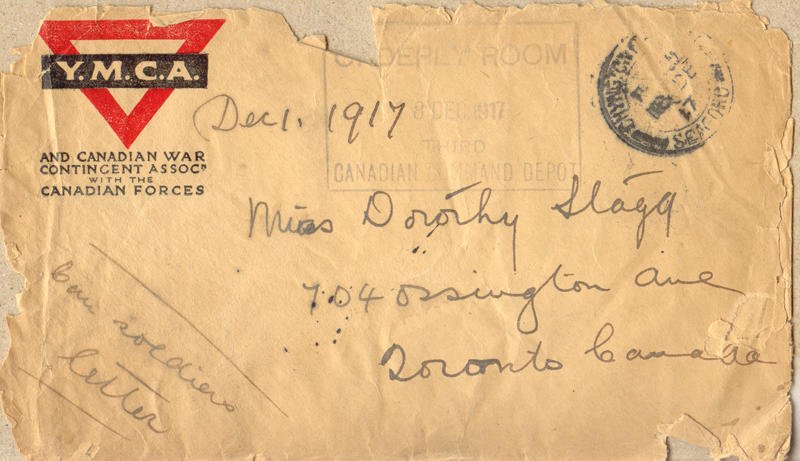 Y.M.C.A.
AND CANADIAN WAR
CONTINGENT ASSOCN
WITH THE
CANADIAN FORCES
ORDERLY ROOM
8 DEC. 1917
THIRD
CANADIAN COMMAND DEPOT
SEAFORD
Dec 1. 1917
Miss Dorothy Stagg
704 Ossington Ave
Toronto Canada
Can soldiers
letter